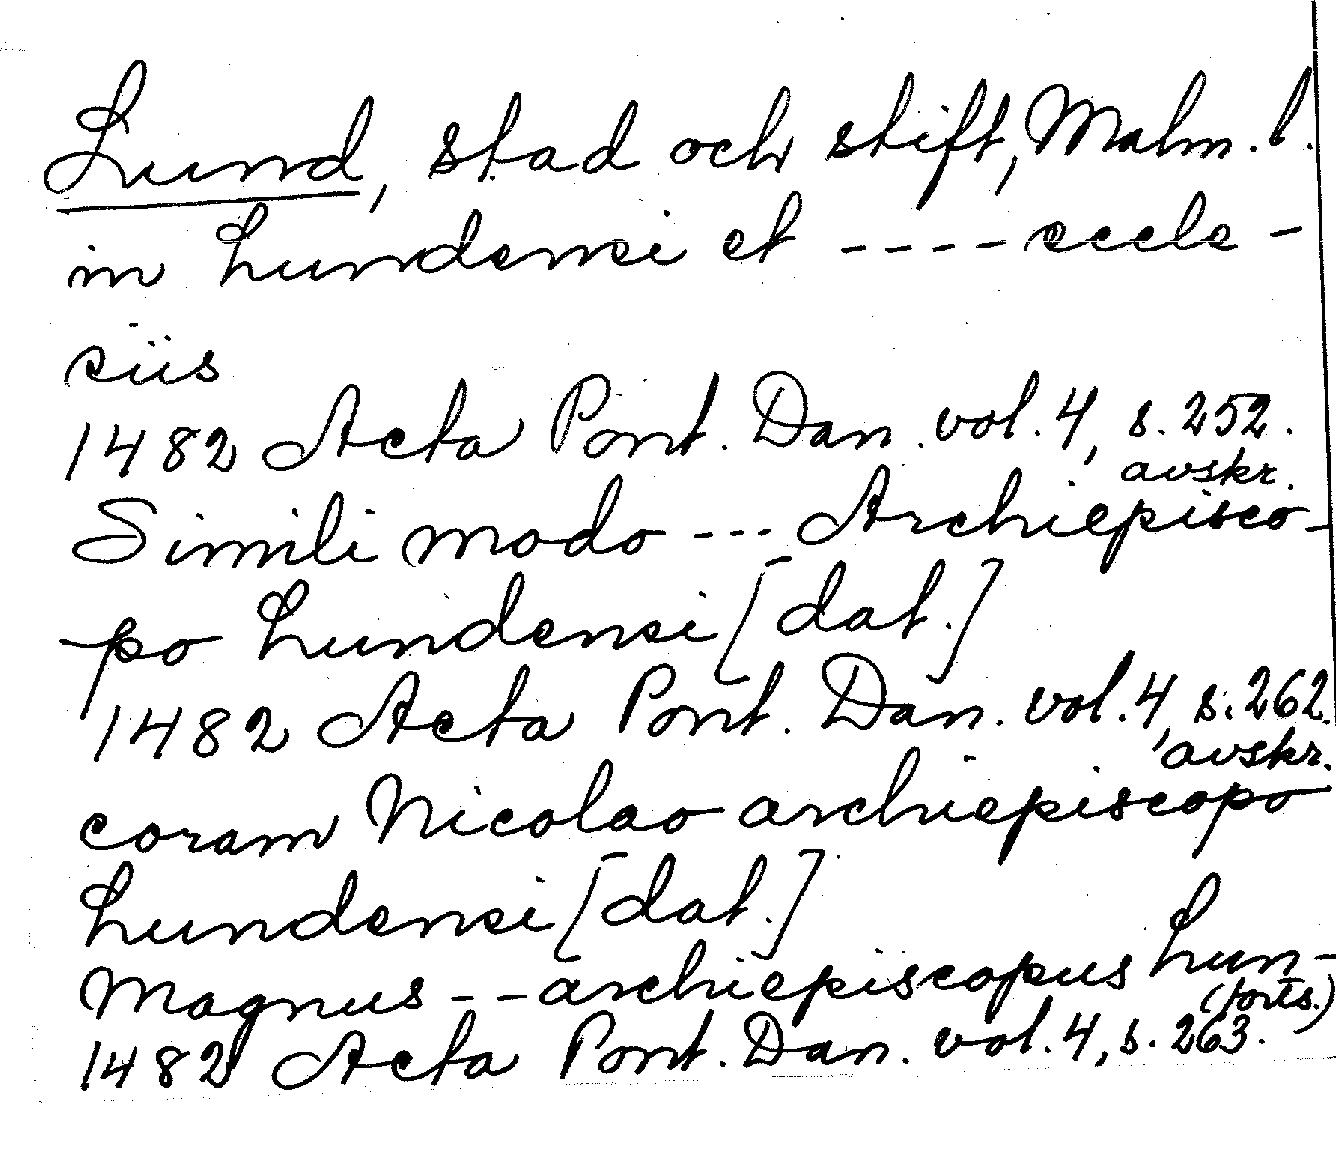 Lund, stad och stift, Malm. l.
in Lundensi et ---- eccle-
siis
1482 Acta Pont. Dan. vol. 4, s. 252.
avskr.
Simili modo --- Archiepisco-
po Lundensi [dat.]
1482 Acta Pont. Dan. vol. 4, s. 262.
avskr.
coram Nicolao archiepiscopo
Lundensi [dat.]
Magnus -- archiepiscopus Lun-
(forts.)
1482 Acta Pont. Dan. vol. 4, s. 263.